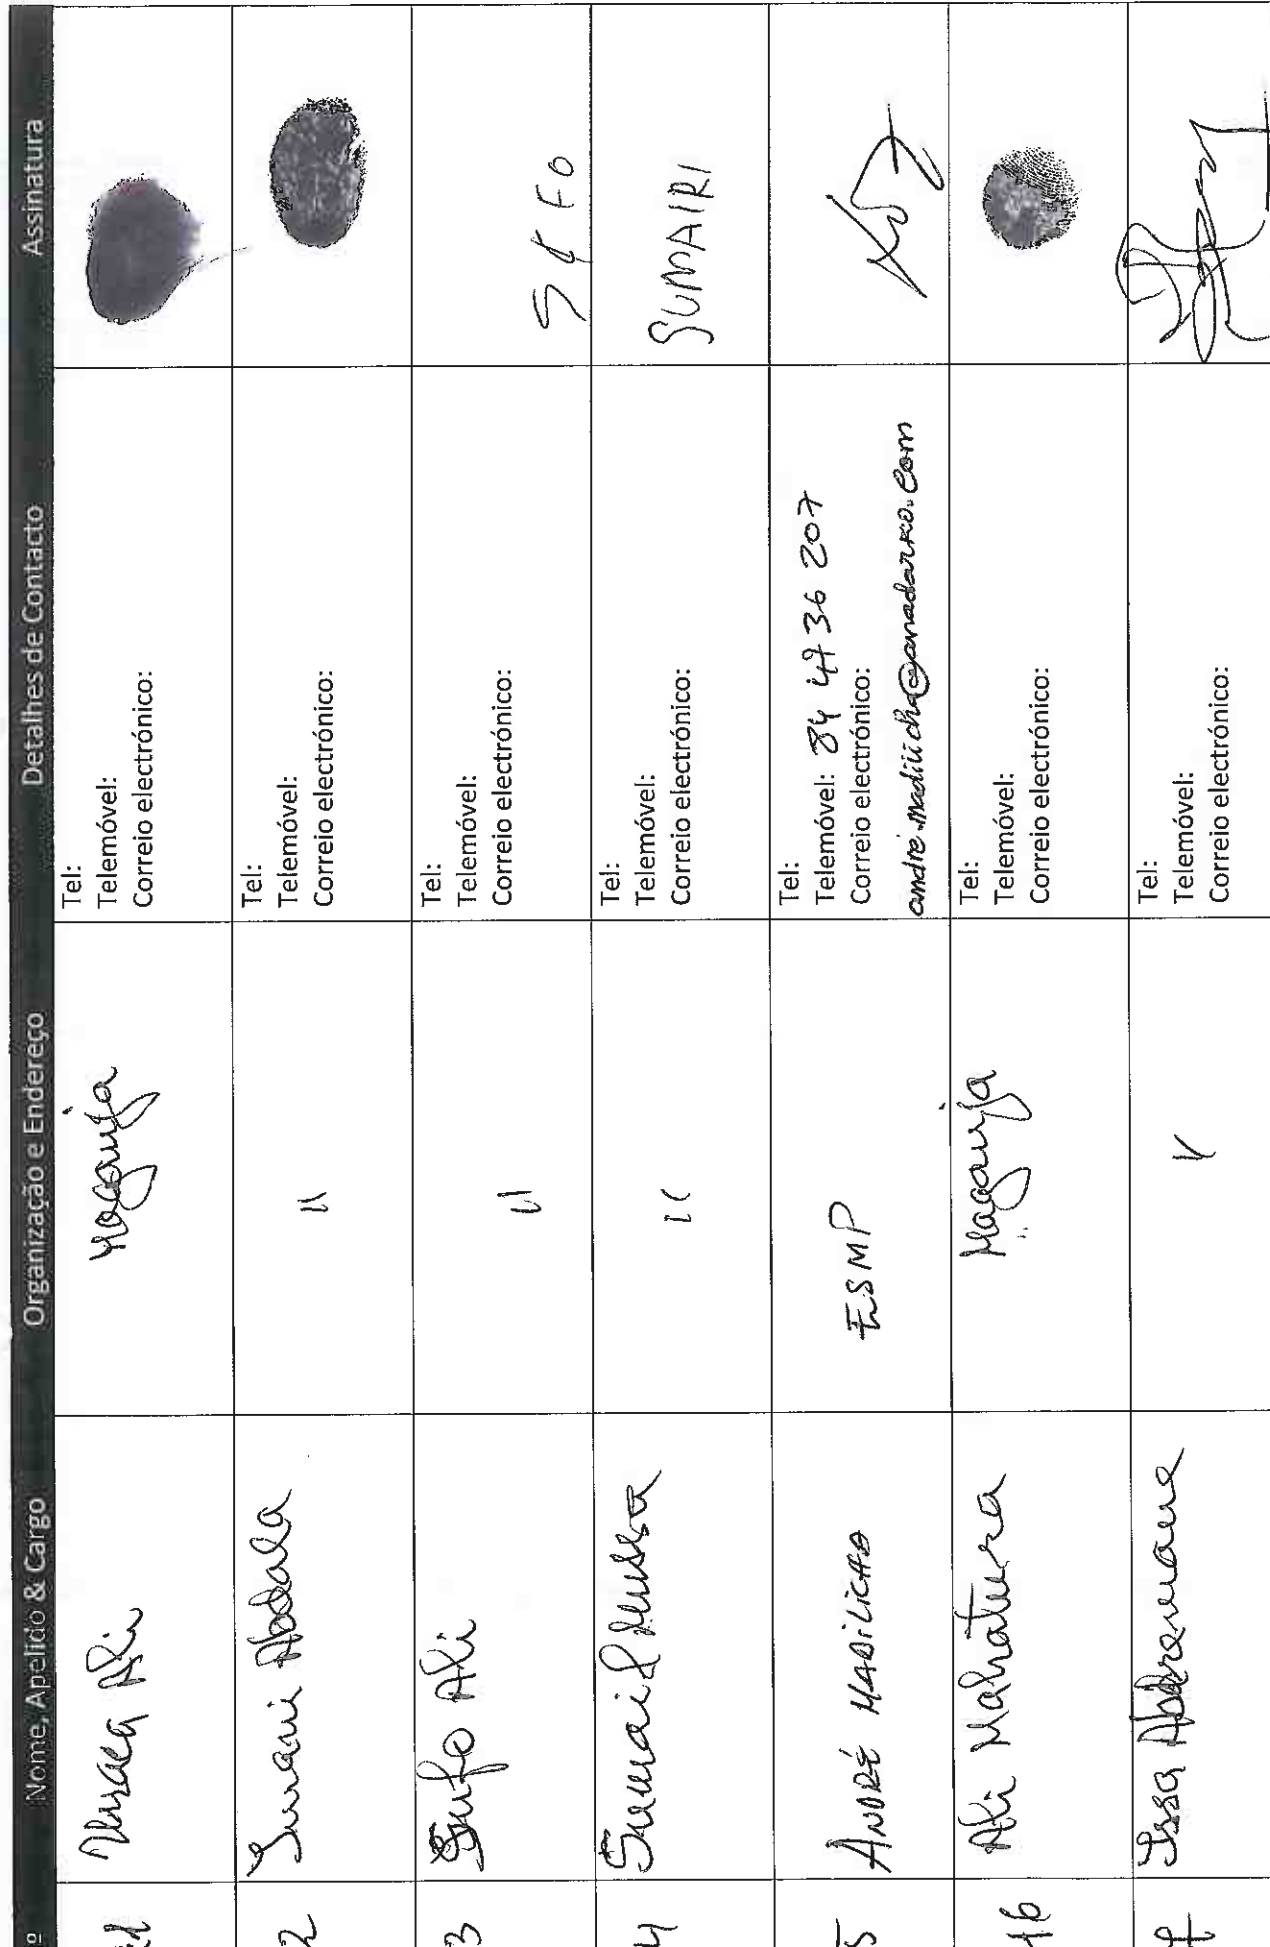 Nº Nome, Apelido & Cargo Organização e Endereço Detalhes de Contacto Assinatura
Ali
Maganja
Tel:
Telemóvel:
Correio electrónico:
2
Abdala
"
Tel:
Telemóvel:
Correio electrónico:
3
Sufo Ali
"
Tel:
Telemóvel:
Correio electrónico:
4
Sumail Mussa
"
Tel:
Telemóvel:
Correio electrónico:
SUMAIRI
5
ANDRÉ MADILICHA
ESMP
Tel:
Telemóvel: 84 47 36 207
Correio electrónico:
andré.madilicha@anadarko.com
16
Ali Mahatura
Maganja
Tel:
Telemóvel:
Correio electrónico:
7
Issa Abdremane
"
Tel:
Telemóvel:
Correio electrónico: